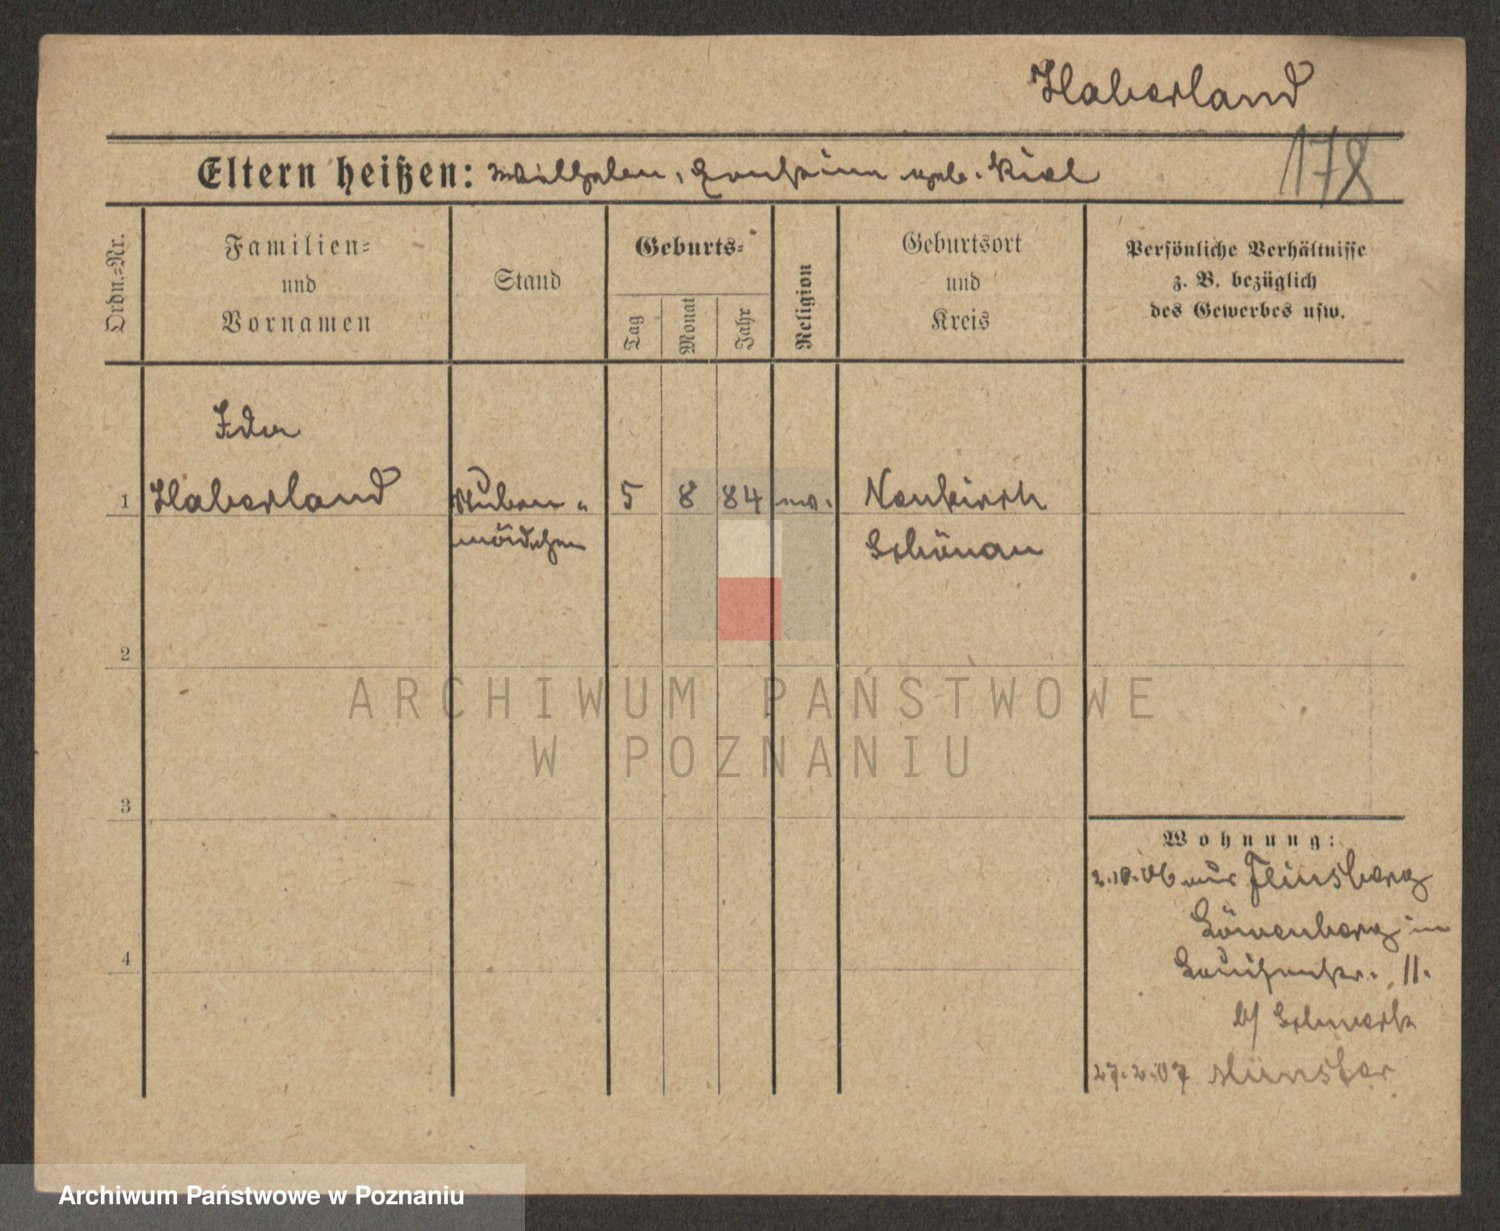 Haberland
178
Eltern heißen: Wilhelm, geb. Kiol
Ordn.-Nr.
Familien-
und
Vornamen
Stand
Geburts-
Tag
Monat
Jahr
Religion
Geburtsort
und
Kreis
Persönliche Verhältnisse
z. B. bezüglich
des Gewerbes usw.
Ida
1 Haberland Stuben- 5 8 84 ev. Neukirch
mädchen Schönau
2
3
4
Wohnung:
2.10.06 aus Flinsberg
Löwenberg in
Louisenstr. 11.
b/
27.2.07 Münster
ARCHIWUM PAŃSTWOWE
W POZNANIU
Archiwum Państwowe w Poznaniu